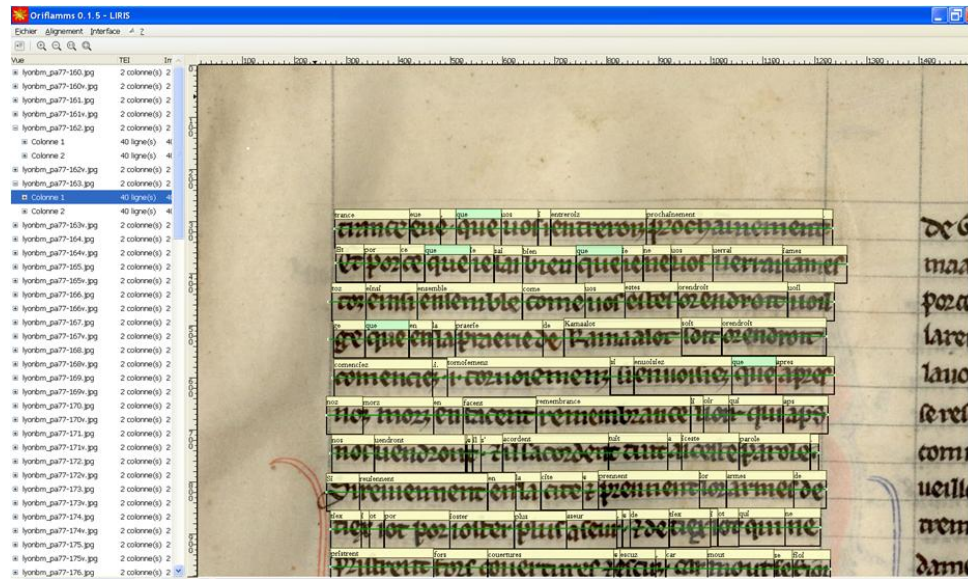 Oriflamms 0.1.5 - LIRIS
Fichier Alignement Interface ?
Vue TEI Im
lyonbm_pa77-160.jpg 2 colonne(s) 2
lyonbm_pa77-160v.jpg 2 colonne(s) 2
lyonbm_pa77-161.jpg 2 colonne(s) 2
lyonbm_pa77-161v.jpg 2 colonne(s) 2
lyonbm_pa77-162.jpg 2 colonne(s) 2
Colonne 1 40 ligne(s) 4
Colonne 2 40 ligne(s) 4
lyonbm_pa77-162v.jpg 2 colonne(s) 2
lyonbm_pa77-163.jpg 2 colonne(s) 2
Colonne 1 40 ligne(s) 4
Colonne 2 40 ligne(s) 4
lyonbm_pa77-163v.jpg 2 colonne(s) 2
lyonbm_pa77-164.jpg 2 colonne(s) 2
lyonbm_pa77-164v.jpg 2 colonne(s) 2
lyonbm_pa77-165.jpg 2 colonne(s) 2
lyonbm_pa77-165v.jpg 2 colonne(s) 2
lyonbm_pa77-166.jpg 2 colonne(s) 2
lyonbm_pa77-166v.jpg 2 colonne(s) 2
lyonbm_pa77-167.jpg 2 colonne(s) 2
lyonbm_pa77-167v.jpg 2 colonne(s) 2
lyonbm_pa77-168.jpg 2 colonne(s) 2
lyonbm_pa77-168v.jpg 2 colonne(s) 2
lyonbm_pa77-169.jpg 2 colonne(s) 2
lyonbm_pa77-169v.jpg 2 colonne(s) 2
lyonbm_pa77-170.jpg 2 colonne(s) 2
lyonbm_pa77-170v.jpg 2 colonne(s) 2
lyonbm_pa77-171.jpg 2 colonne(s) 2
lyonbm_pa77-171v.jpg 2 colonne(s) 2
lyonbm_pa77-172.jpg 2 colonne(s) 2
lyonbm_pa77-172v.jpg 2 colonne(s) 2
lyonbm_pa77-173.jpg 2 colonne(s) 2
lyonbm_pa77-173v.jpg 2 colonne(s) 2
lyonbm_pa77-174.jpg 2 colonne(s) 2
lyonbm_pa77-174v.jpg 2 colonne(s) 2
lyonbm_pa77-175.jpg 2 colonne(s) 2
lyonbm_pa77-175v.jpg 2 colonne(s) 2
lyonbm_pa77-176.jpg 2 colonne(s) 2
0 100 200 300 400 500 600 700 800 900 1000 1100 1200 1300 1400
trance eue que uos i entreroiz prochainement
Et por ce que ie sai bien que ie ne uos uerrai iames
toz einsi ensemble come uos estes orendroit uoil
ge que en la praerie de Kamaalot soit orendroit
comenciez i. tornoiemenz si enuoisiez que apres
noz morz en facent remembrance li oir qui aps
nos uendront a il s' acordent tuit a iceste parole
Si reuiennent en la cite & prennent lor armes de
tiex i ot por ioster plus aseur & de tiex i ot qui ne
pristrent fors couertures & escuz . car mout se fioi
de G
maa
porce
laren
lauo
se res
comm
ueille
trem
dame